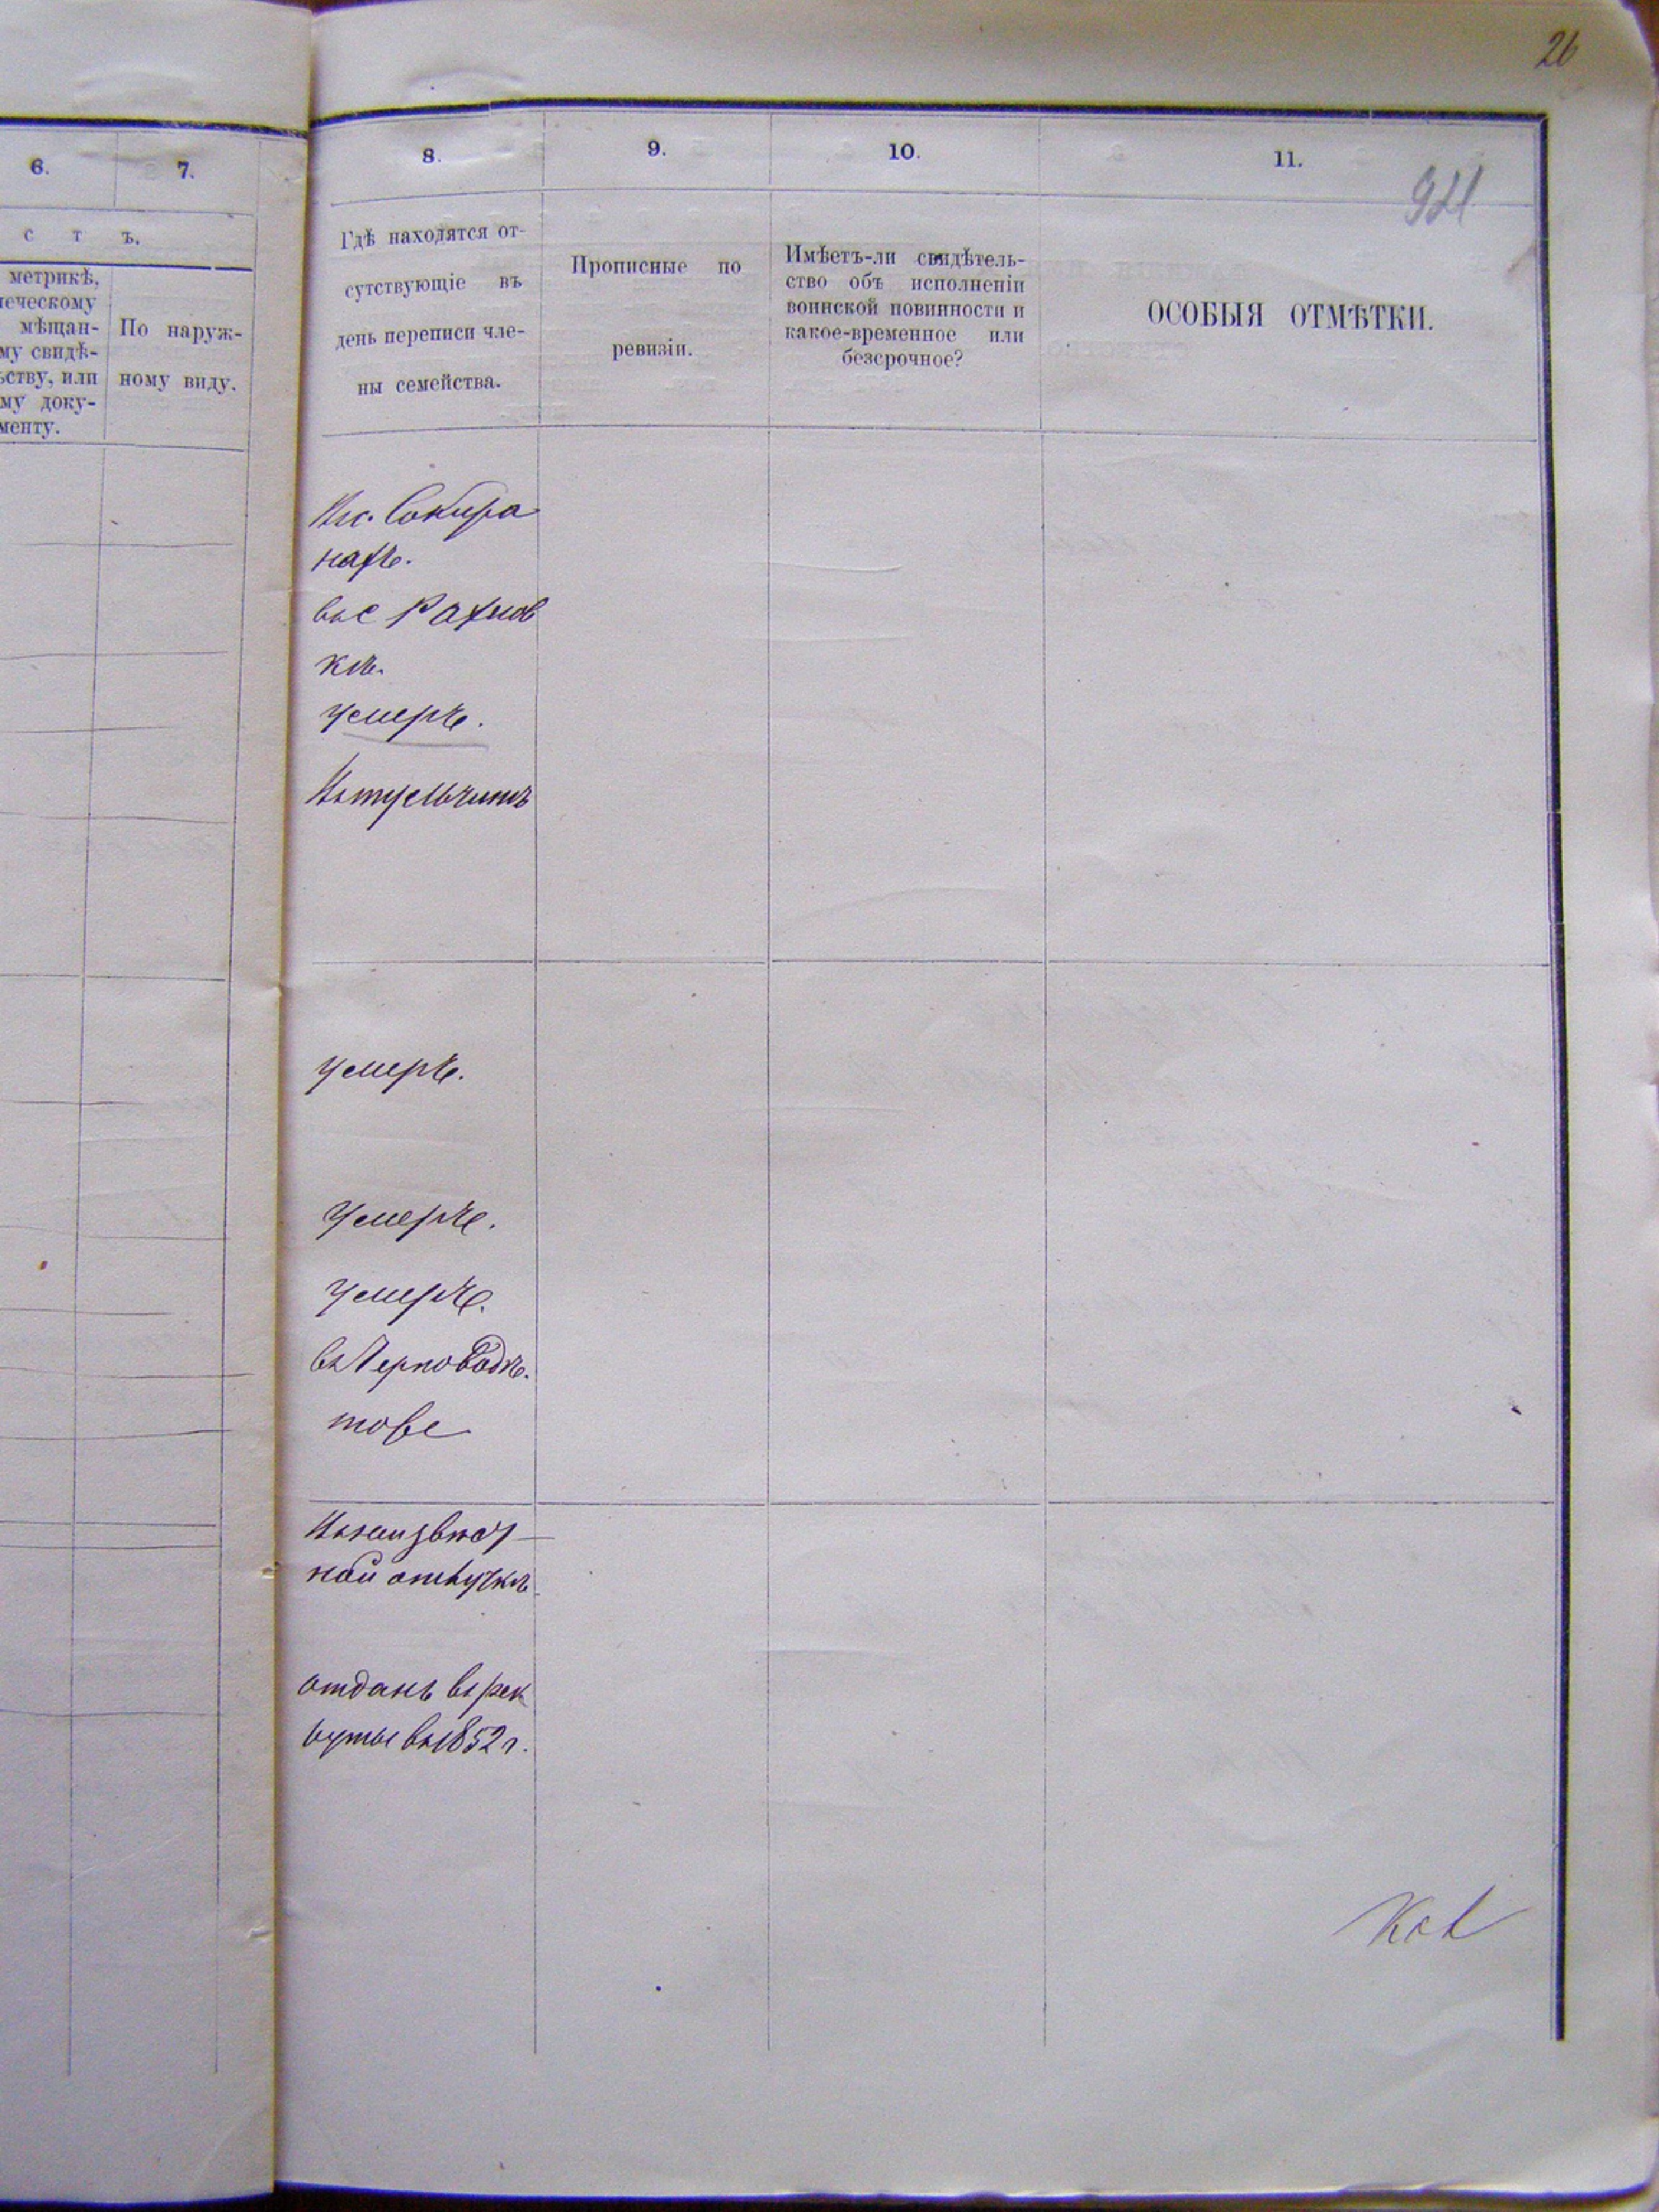 26
6.
7.
8.
9.
10.
11.
921
с т ъ.
метрикѣ,
ческому
мѣщан-
му свидѣ-
ству, или
му доку-
менту.
По наруж-
ному виду.
Гдѣ находятся от-
сутствующіе въ
день переписи чле-
ны семейства.
Прописные по
ревизіи.
Имѣетъ-ли свидѣтель-
ство объ исполненіи
воинской повинности и
какое-временное или
безсрочное?
ОСОБЫЯ ОТМѢТКИ.
Сокиря
нахъ.
въ с Рахнов
кѣ.
умеръ.
умеръ.
умеръ.
умеръ.
въ
тове
ной отлучкѣ
отданъ въ рек
руты въ 1852 г.